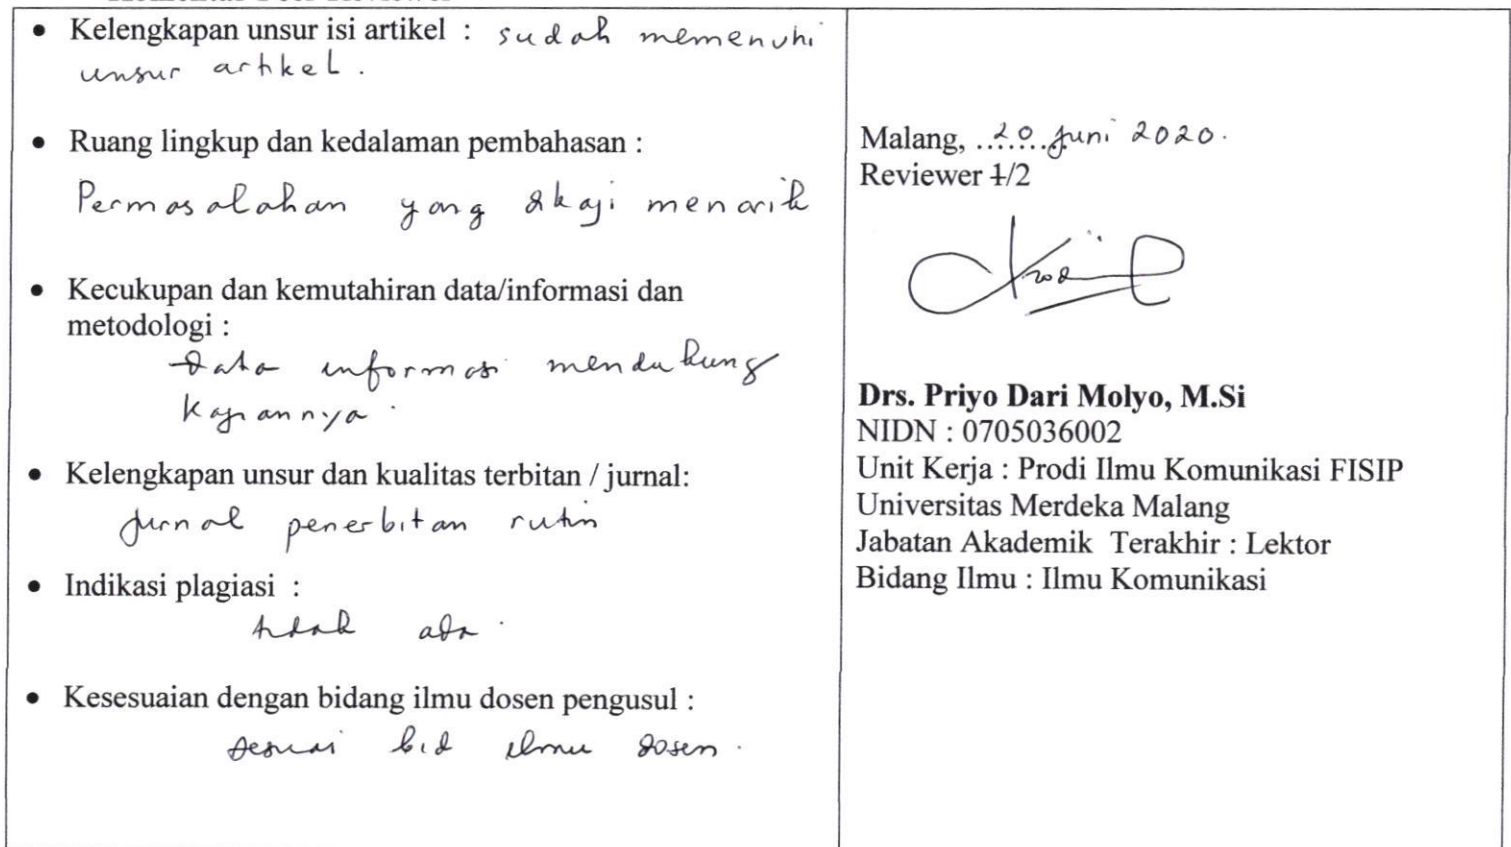 • Kelengkapan unsur isi artikel : sudah memenuhi
unsur artikel.
• Ruang lingkup dan kedalaman pembahasan :
Permasalahan yang dikaji menarik
• Kecukupan dan kemutahiran data/informasi dan
metodologi :
Data informasi mendukung
Kajiannya.
• Kelengkapan unsur dan kualitas terbitan / jurnal:
Jurnal penerbitan rutin
• Indikasi plagiasi :
tidak ada.
• Kesesuaian dengan bidang ilmu dosen pengusul :
sesuai bid ilmu dosen.
Malang, ......20 Juni 2020.
Reviewer 1/2
Drs. Priyo Dari Molyo, M.Si
NIDN : 0705036002
Unit Kerja : Prodi Ilmu Komunikasi FISIP
Universitas Merdeka Malang
Jabatan Akademik Terakhir : Lektor
Bidang Ilmu : Ilmu Komunikasi